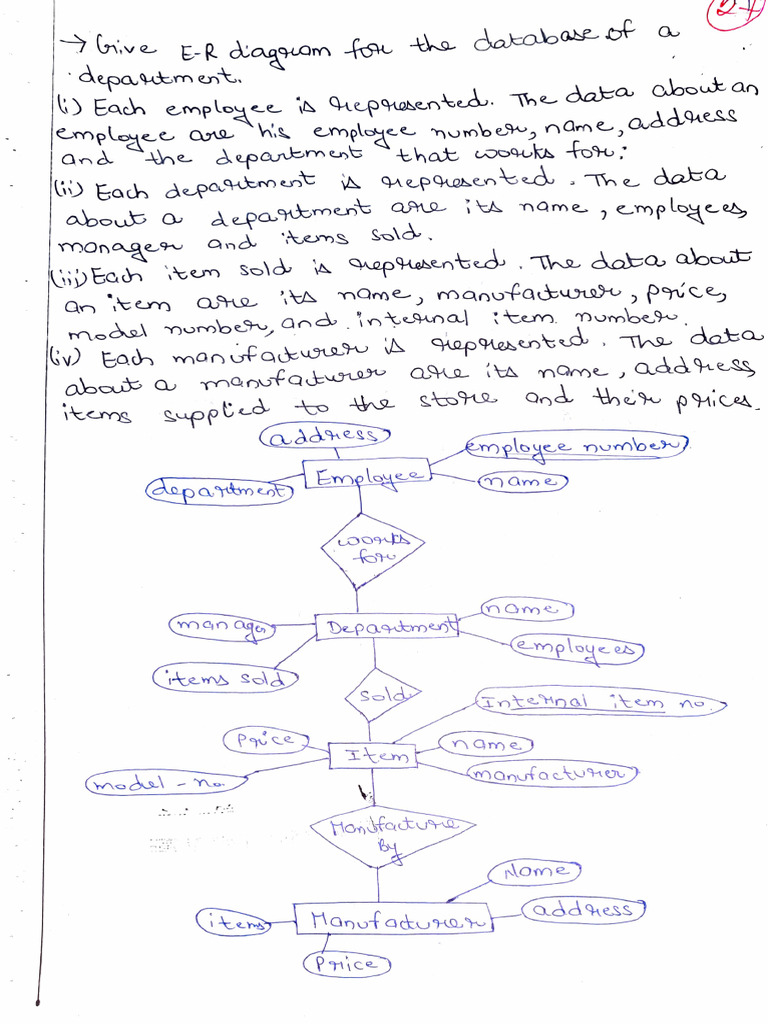 27
→ Give E-R diagram for the database of a
department.
(i) Each employee is represented. The data about an
employee are his employee number, name, address
and the department that works for.
(ii) Each department is represented. The data
about a department are its name, employees,
manager and items sold.
(iii) Each item sold is represented. The data about
an item are its name, manufacturer, price,
model number, and internal item number.
(iv) Each manufacturer is represented. The data
about a manufacturer are its name, address,
items supplied to the store and their prices.
address
employee number
Employee
department
name
works
for
name
manager
Department
employees
items sold
sold
Internal item no.
Price
name
Item
manufacturer
model - no.
Manufacture
By
Name
items
Manufacturer
address
Price